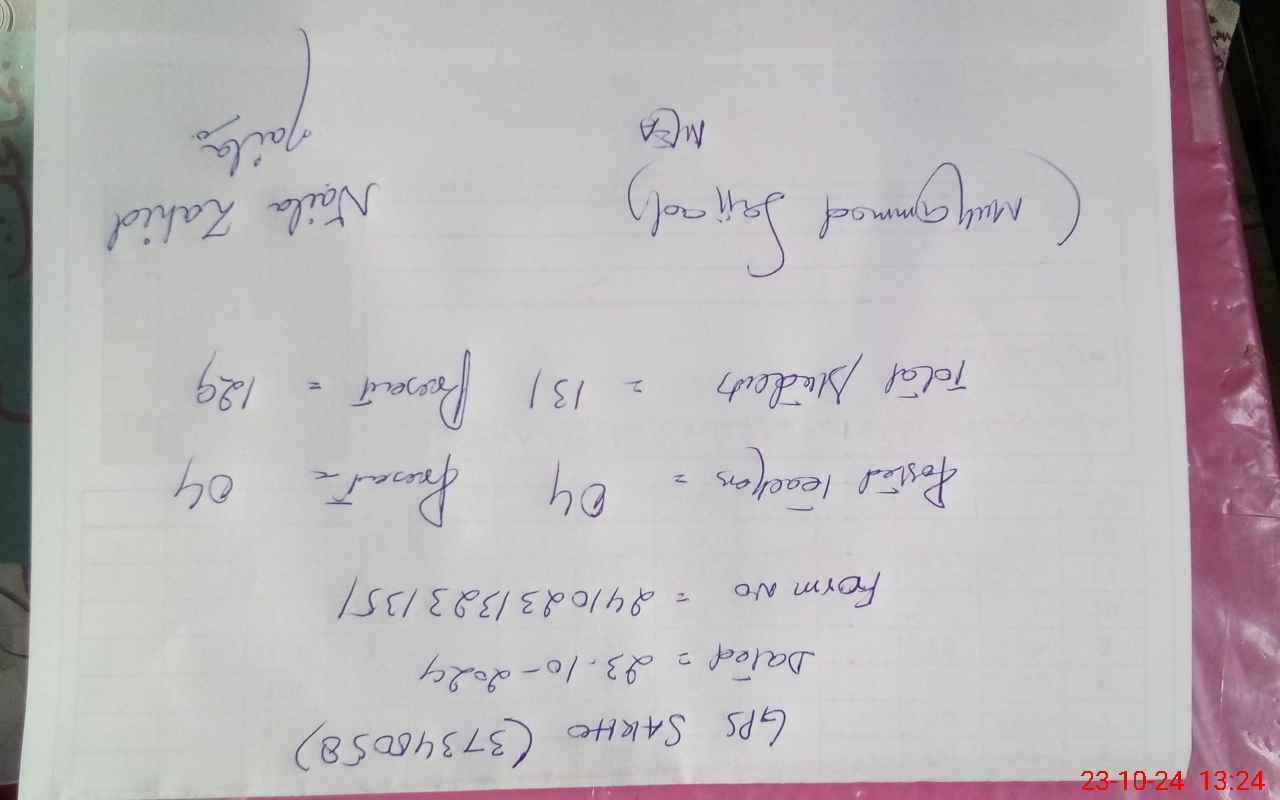 GPS SAKHO (37340058)
Dated = 23-10-2024
Form No = 24102313231351
Posted teachers = 04 Present = 04
Total students = 131 Present = 129
(Muhammad Sajjad) Naila Zahid
MEA Naila
23-10-24 13:24